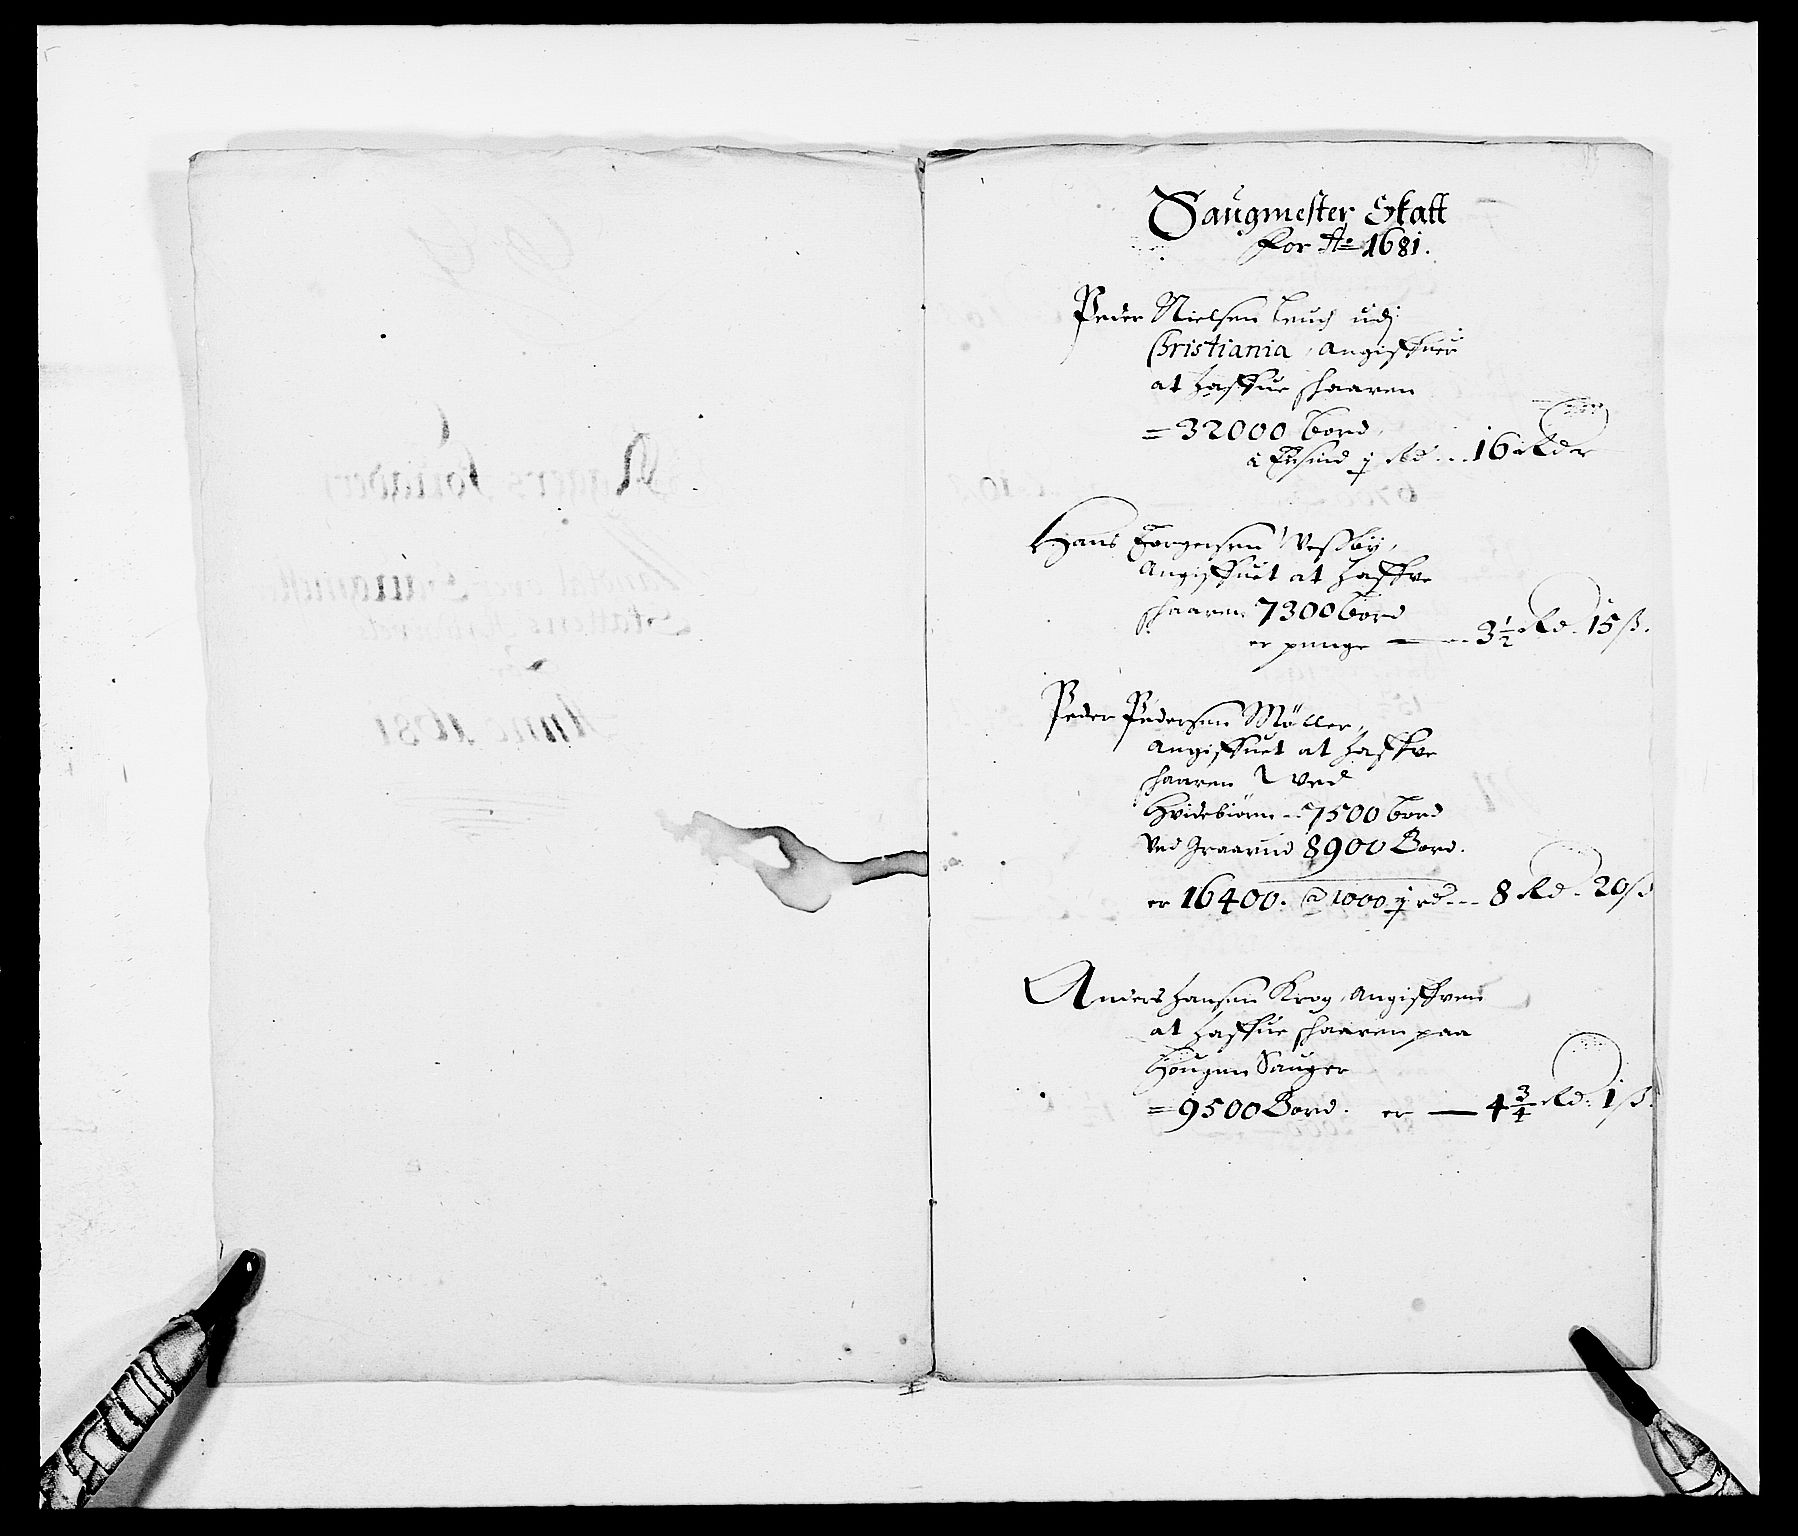 Saugmester Skatt
for Ao 1681.
Peder Nielsen Leuch udj
Christiania, Angiffuer
at haffue skaaren
= 32000 bord,
á Tusind ½ Rd - - 16 Rdr
Hans Jørgensen Wessbÿ,
Angiffuet at haffve
skaaren 7300 bord
er penge — 3½ Rd. 15 ß.
Peder Pedersen Møller,
Angiffuet at haffve
skaaren ved
Hvidebiørn - 7500 bord
Ved Graarud 8900 Bord.
er 16400. @ 1000 ½ rd - - - 8 Rd. 20 ß
Anders Hansen Krog, Angiffven
at haffue skaaren paa
Hougen Sauger
= 9500 Bord. er — 4¾ Rd. 1 ß.